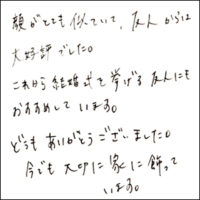 顔がとても似ていて、友人からは
大好評でした。
これから結婚式を挙げる友人にも
おすすめしています。
どうもありがとうございました。
今でも大切に家に飾って
います。